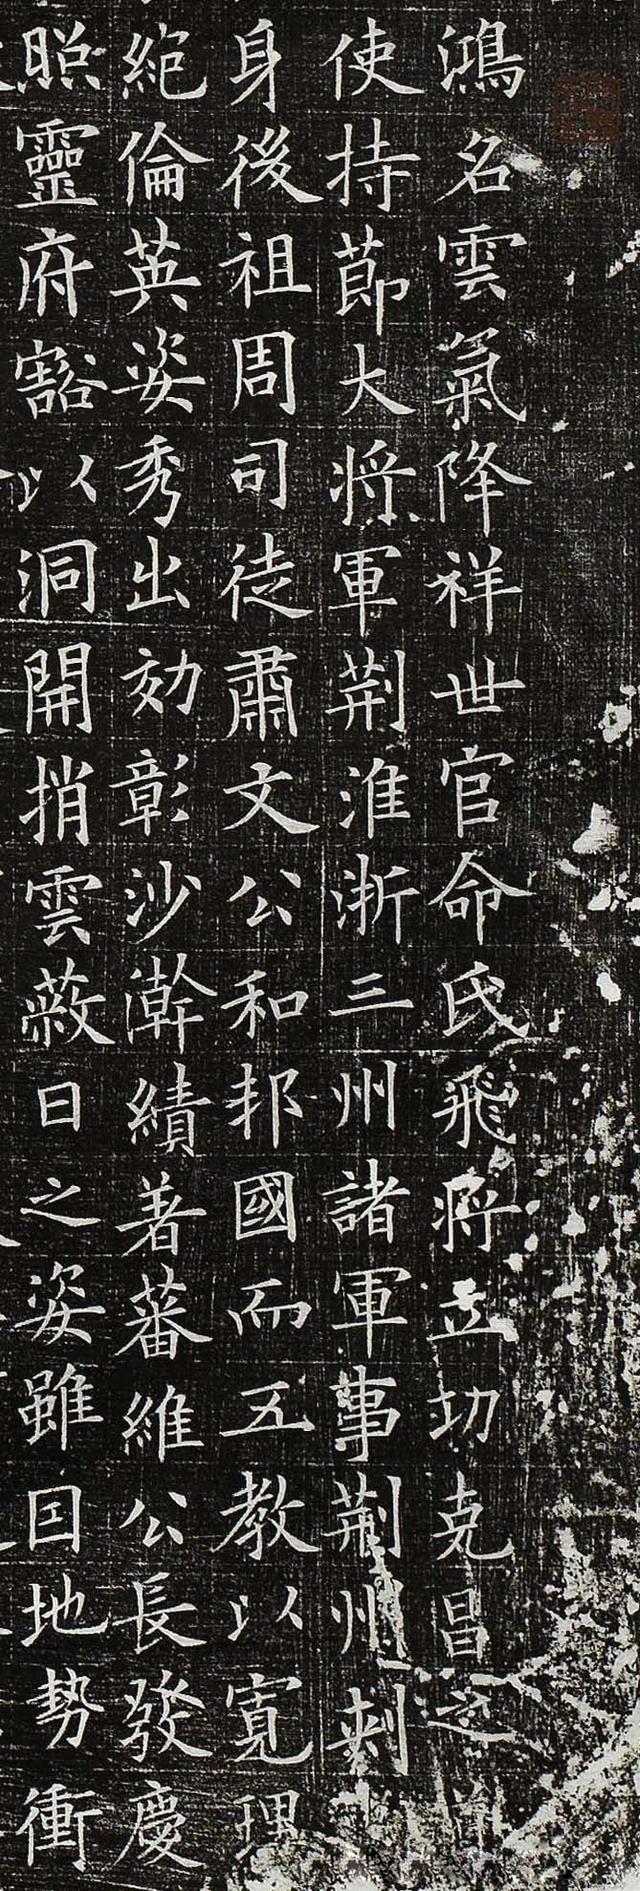 鴻名雲氣降祥世官命氏飛將立功克昌之
使持節大將軍荆淮浙三州諸軍事荆州刺
身後祖周司徒肅文公和邦國而五教以寛理
絕倫英姿秀出効彰沙澣績著蕃維公長發慶
照靈府豁以洞開捎雲蔽日之姿雖因地勢衝